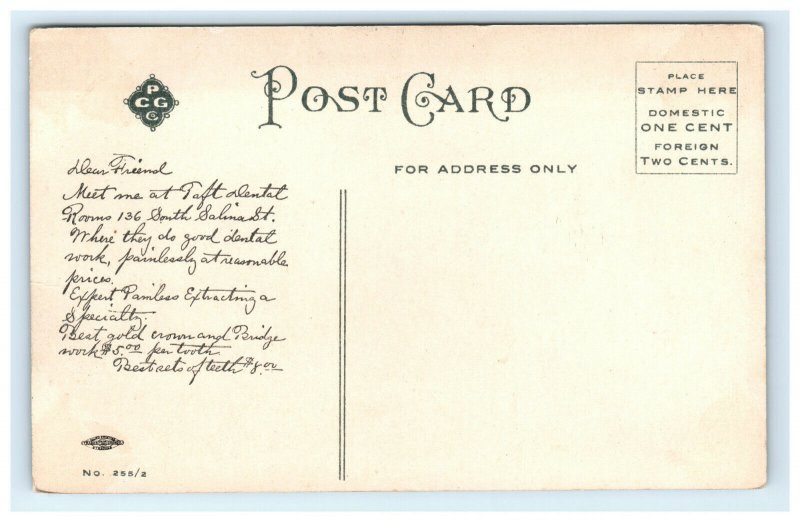 P
C C G
C
POST CARD
PLACE
STAMP HERE
DOMESTIC
ONE CENT
FOREIGN
TWO CENTS.
FOR ADDRESS ONLY
Dear Friend
Meet me at Taft Dental
Rooms 136 South Salina St.
Where they do good dental
work, painlessly at reasonable
prices.
Expert Painless Extracting a
Specialty.
Best gold crown and Bridge
work $5.00 per tooth.
Best sets of teeth $8.00
No. 255/2